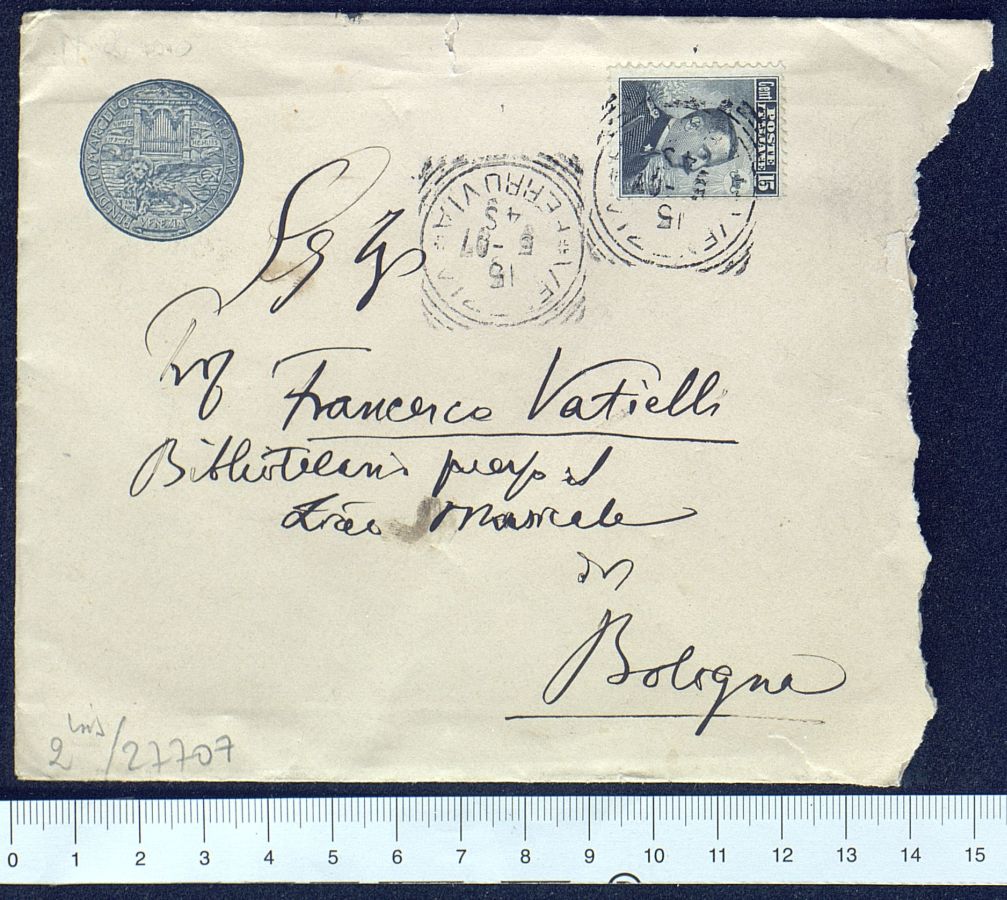 BENEDETTO MARCELLO
VENEZIA
POSTE ITALIANE
Cent. 15
15
5 - 07
4 S
FERROVIA
15
Prof Francesco Vatielli
Bibliotecario presso il
Liceo Musicale
di
Bologna
2 ins/27707
0 1 2 3 4 5 6 7 8 9 10 11 12 13 14 15